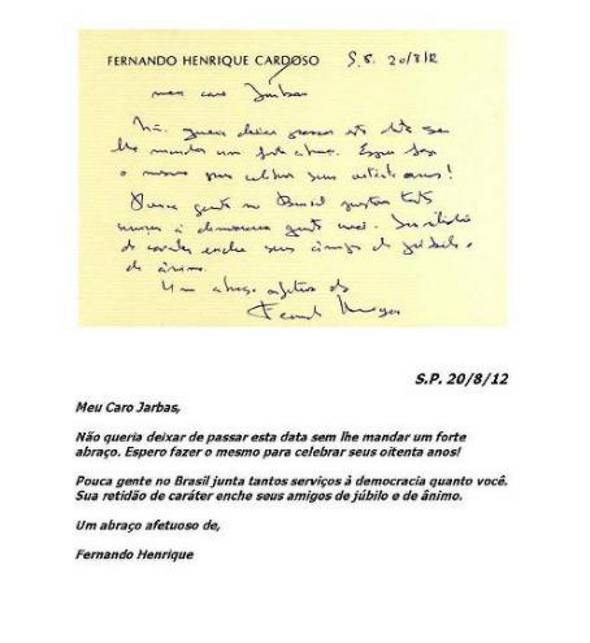 FERNANDO HENRIQUE CARDOSO S.P. 20/8/12
meu caro Jarbas
Não queria deixar passar esta data sem
lhe mandar um forte abraço. Espero fazer
o mesmo para celebrar seus oitenta anos!
Pouca gente no Brasil tantos
serviços à democracia quanto você. Sua retidão
de caráter enche seus amigos de júbilo e
de ânimo.
Um abraço afetuoso do
Fernando Henrique
S.P. 20/8/12
Meu Caro Jarbas,
Não queria deixar de passar esta data sem lhe mandar um forte
abraço. Espero fazer o mesmo para celebrar seus oitenta anos!
Pouca gente no Brasil junta tantos serviços à democracia quanto você.
Sua retidão de caráter enche seus amigos de júbilo e de ânimo.
Um abraço afetuoso de,
Fernando Henrique